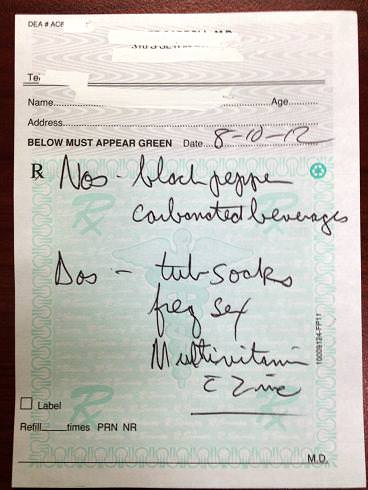 DEA #
Name Age
Address
BELOW MUST APPEAR GREEN Date 8-10-12
R Nos - black pepper
Carbonated beverages
Dos - tub soaks
freq sex
Multivitamin
c̄ Zinc
Label
Refill times PRN NR
M.D.
10009124-FP11